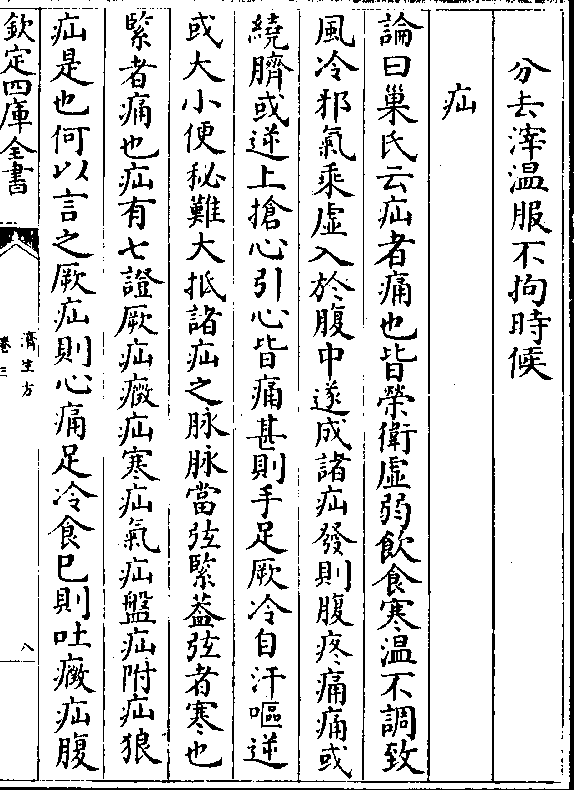 分去滓温服不拘時候
疝
論曰巢氏云疝者痛也皆榮衛虚弱飲食寒温不調致
風冷邪氣乘虚入於腹中遂成諸疝發則腹疼痛痛或
繞臍或逆上搶心引心皆痛甚則手足厥冷自汗嘔逆
或大小便秘難大抵諸疝之脉脉當弦緊葢弦者寒也
緊者痛也疝有七證厥疝癥疝寒疝氣疝盤疝附疝狼
疝是也何以言之厥疝則心痛足冷食已則吐癥疝腹
欽定四庫全書
濟生方
卷三
八